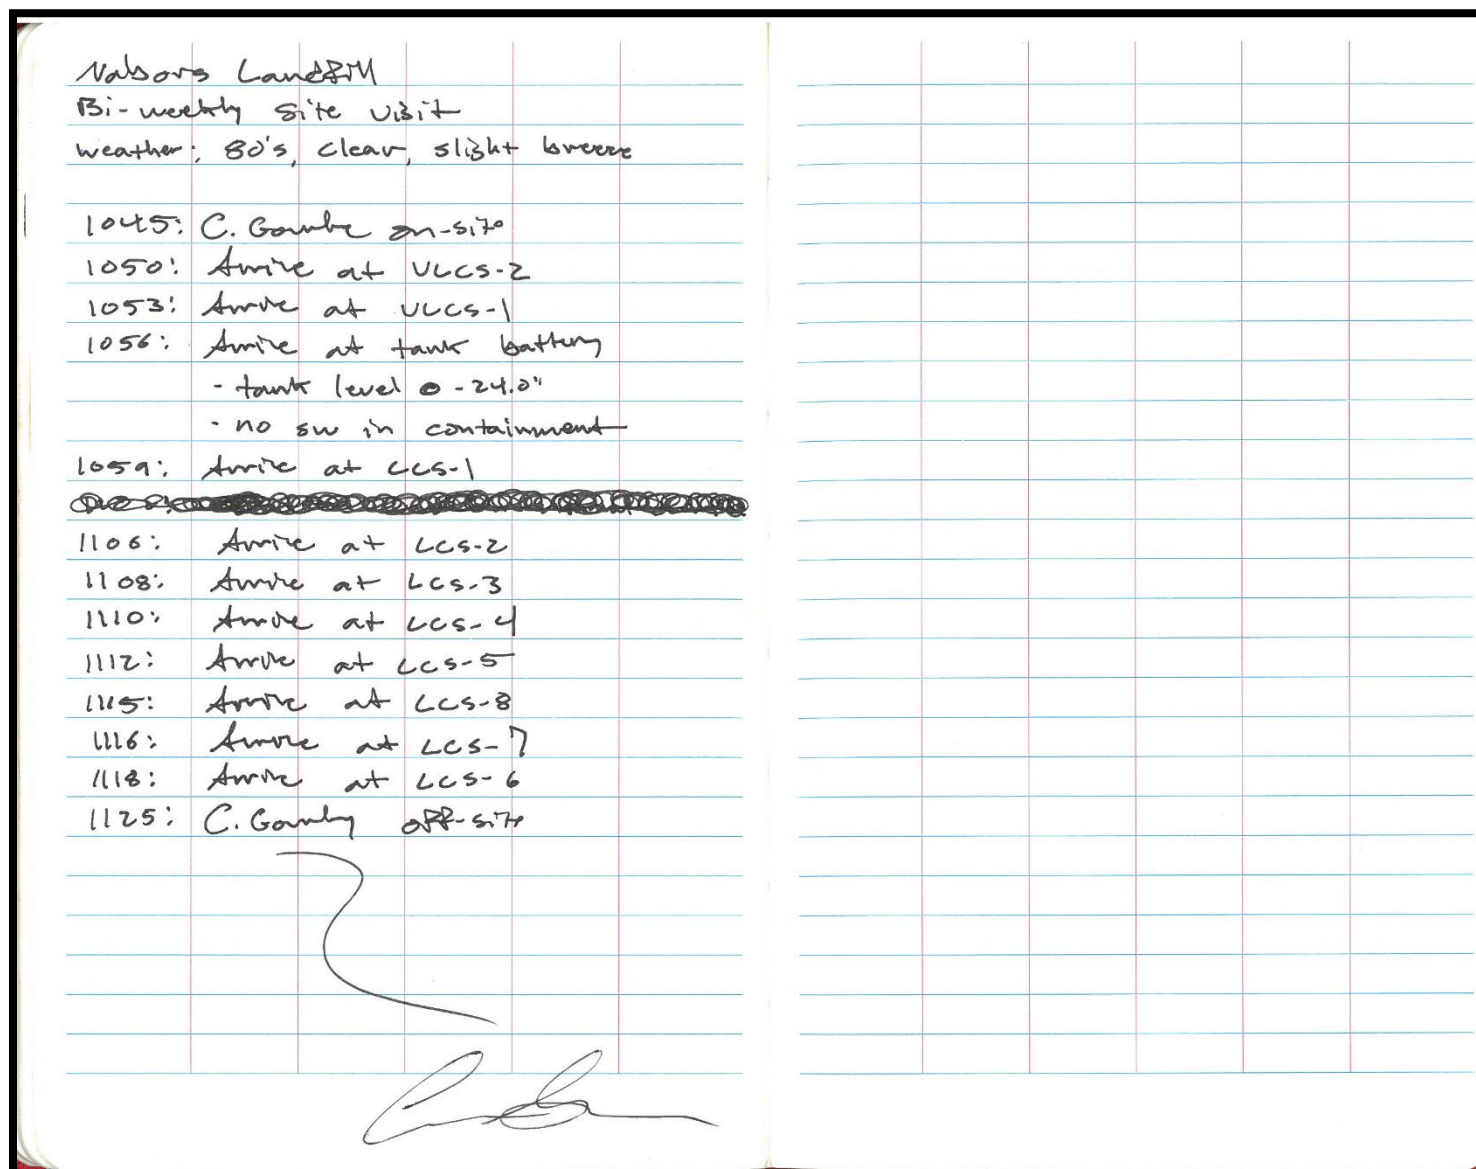 Nabors Landfill
Bi-weekly site visit
weather: 80's, clear, slight breeze
1045: C. on-site
1050: Arrive at VLCS-2
1053: Arrive at VLCS-1
1056: Arrive at tank battery
- tank level - 24.0"
- no sw in containment
1059: Arrive at LCS-1
1106: Arrive at LCS-2
1108: Arrive at LCS-3
1110: Arrive at LCS-4
1112: Arrive at LCS-5
1115: Arrive at LCS-8
1116: Arrive at LCS-7
1118: Arrive at LCS-6
1125: C. off-site